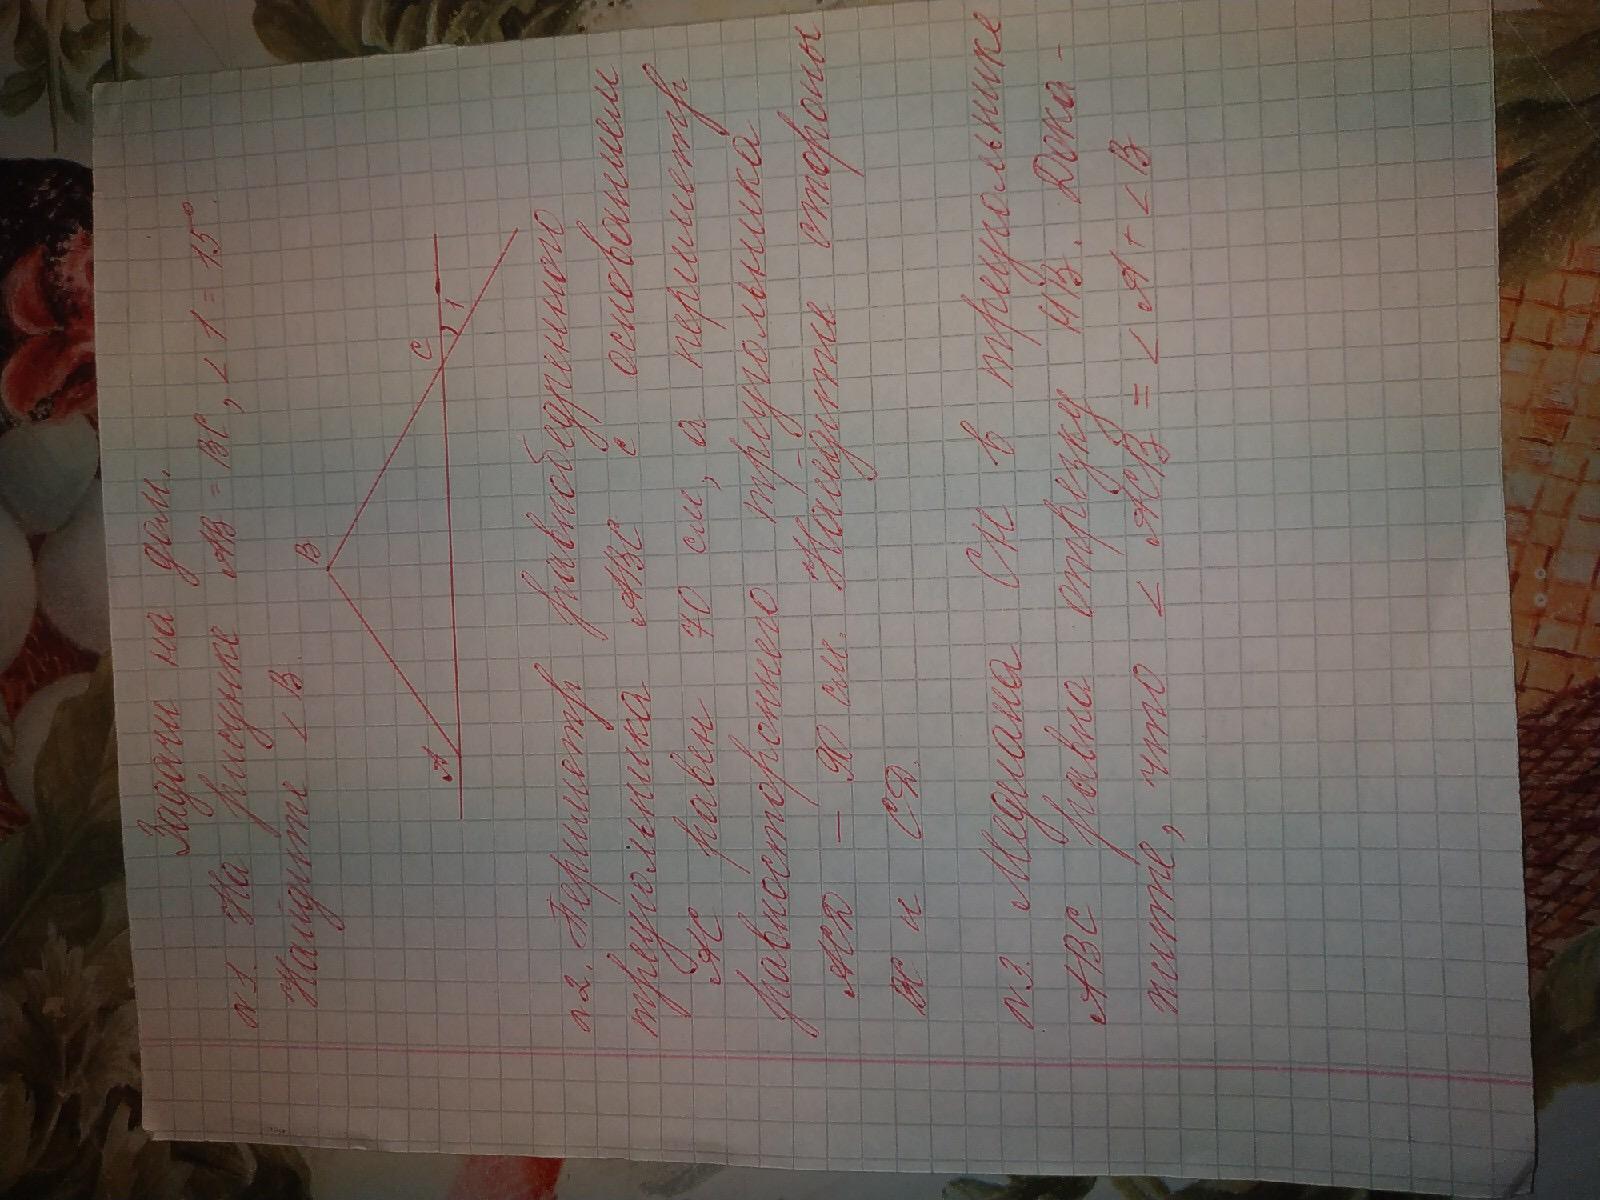 Задачи на дом.
N1. На рисунке AB = BC, ∠1 = 15°.
Найдите ∠B.
B
A
C
1
N2. Периметр равнобедренного
треугольника ABC с основанием
AC равен 70 см, а периметр
равностороннего треугольника
ACD –  см. Найдите стороны
 и CD.
N3. Медиана CH в треугольнике
ABC равна отрезку HB. Дока-
жите, что ∠ACB = ∠A + ∠B